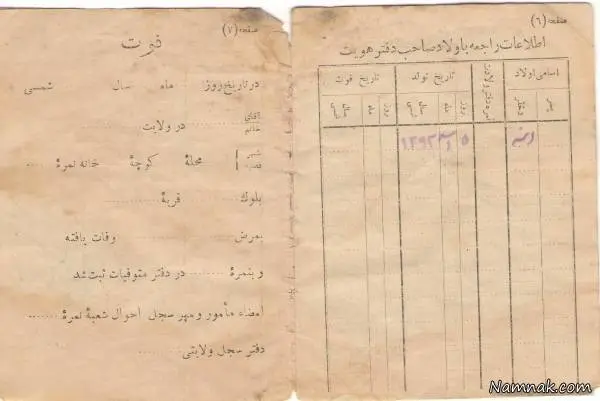 صفحه (۶)
اطلاعات راجعه باولاد صاحب دفتر هویت
اسامی اولاد
نمره دفتر ولادت
تاریخ تولد
تاریخ فوت
پسر
دختر
روز
ماه
سال شمسی
روز
ماه
سال شمسی
۵
صفحه (۷)
فوت
در تاریخ روز ماه سال شمسی
آقای
خانم
در ولایت
شهر
قصبه
محلهٔ کوچهٔ خانه نمرهٔ
بلوك قریهٔ
بمرض وفات یافته
و بنمرهٔ در دفتر متوفیات ثبت شد
امضاء مأمور و مهر سجل احوال شعبهٔ نمرهٔ
دفتر سجل ولایتی
Namnak.com